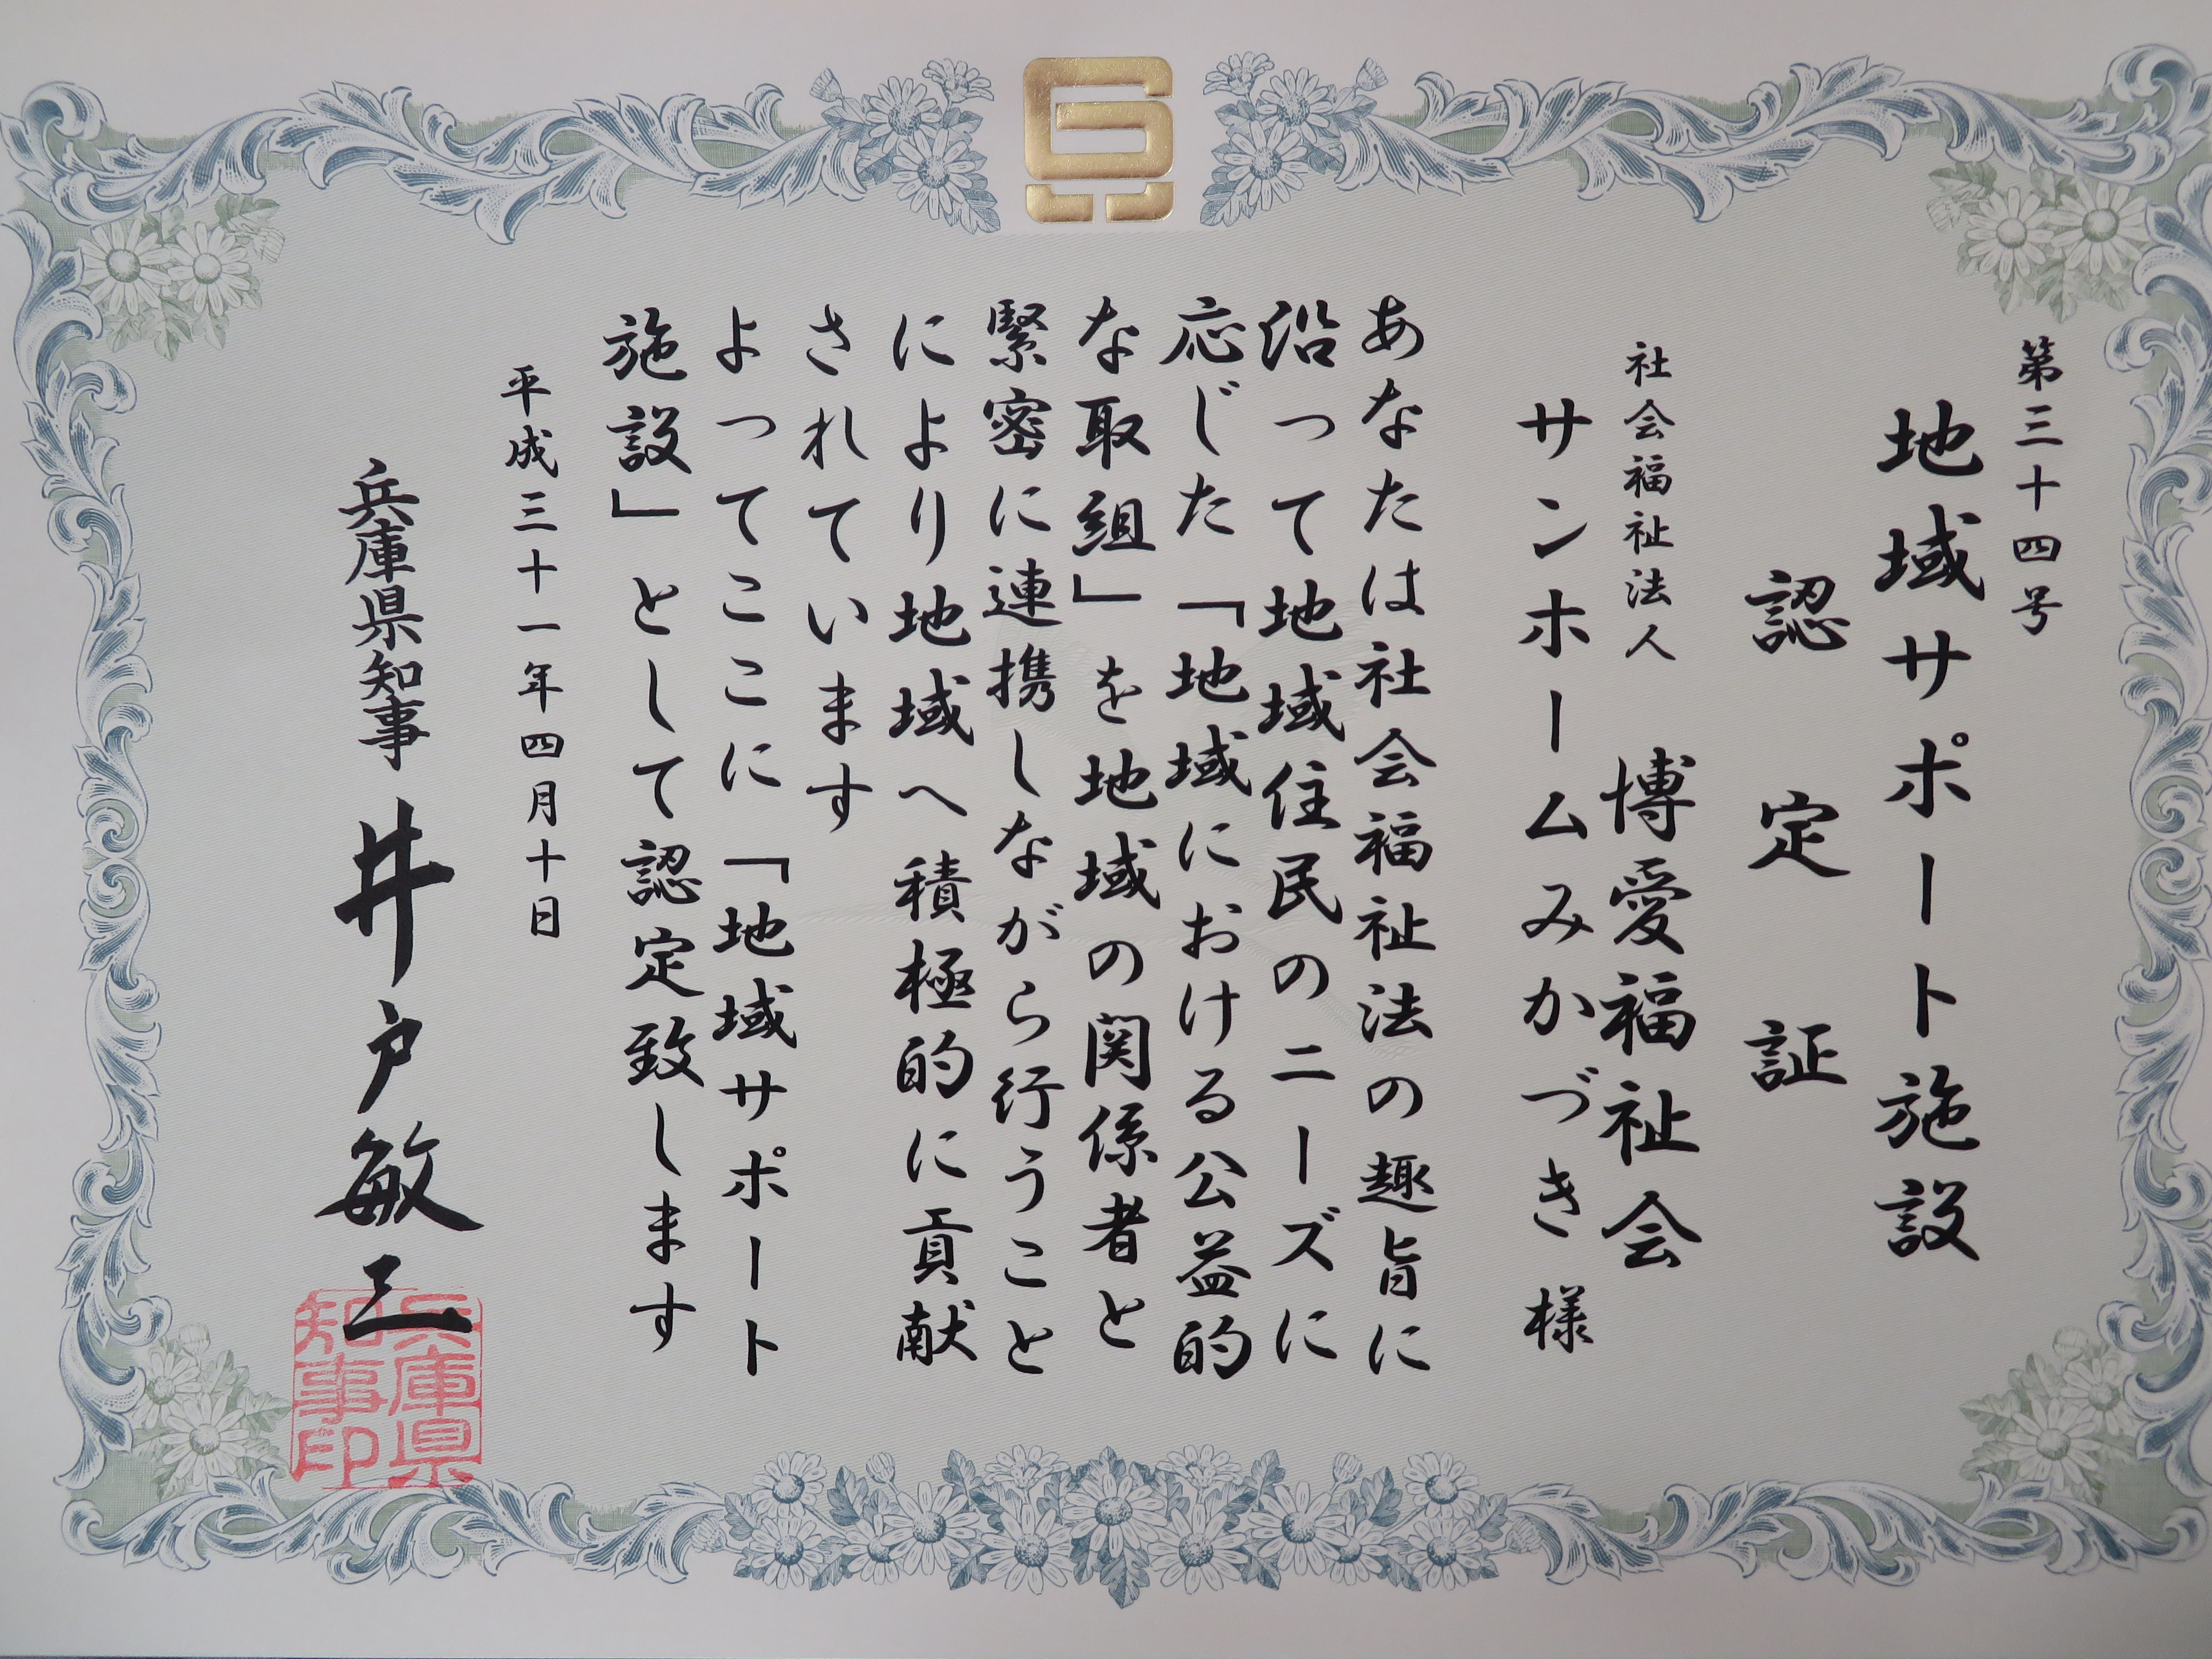 第三十四号
地域サポート施設
認定証
社会福祉法人 博愛福祉会
サンホームみかづき 様
あなたは社会福祉法の趣旨に
沿って地域住民のニーズに
応じた「地域における公益的
な取組」を地域の関係者と
緊密に連携しながら行うこと
により地域へ積極的に貢献
されています
よってここに「地域サポート
施設」として認定致します
平成三十一年四月十日
兵庫県知事 井戸敏三
兵庫県
知事印